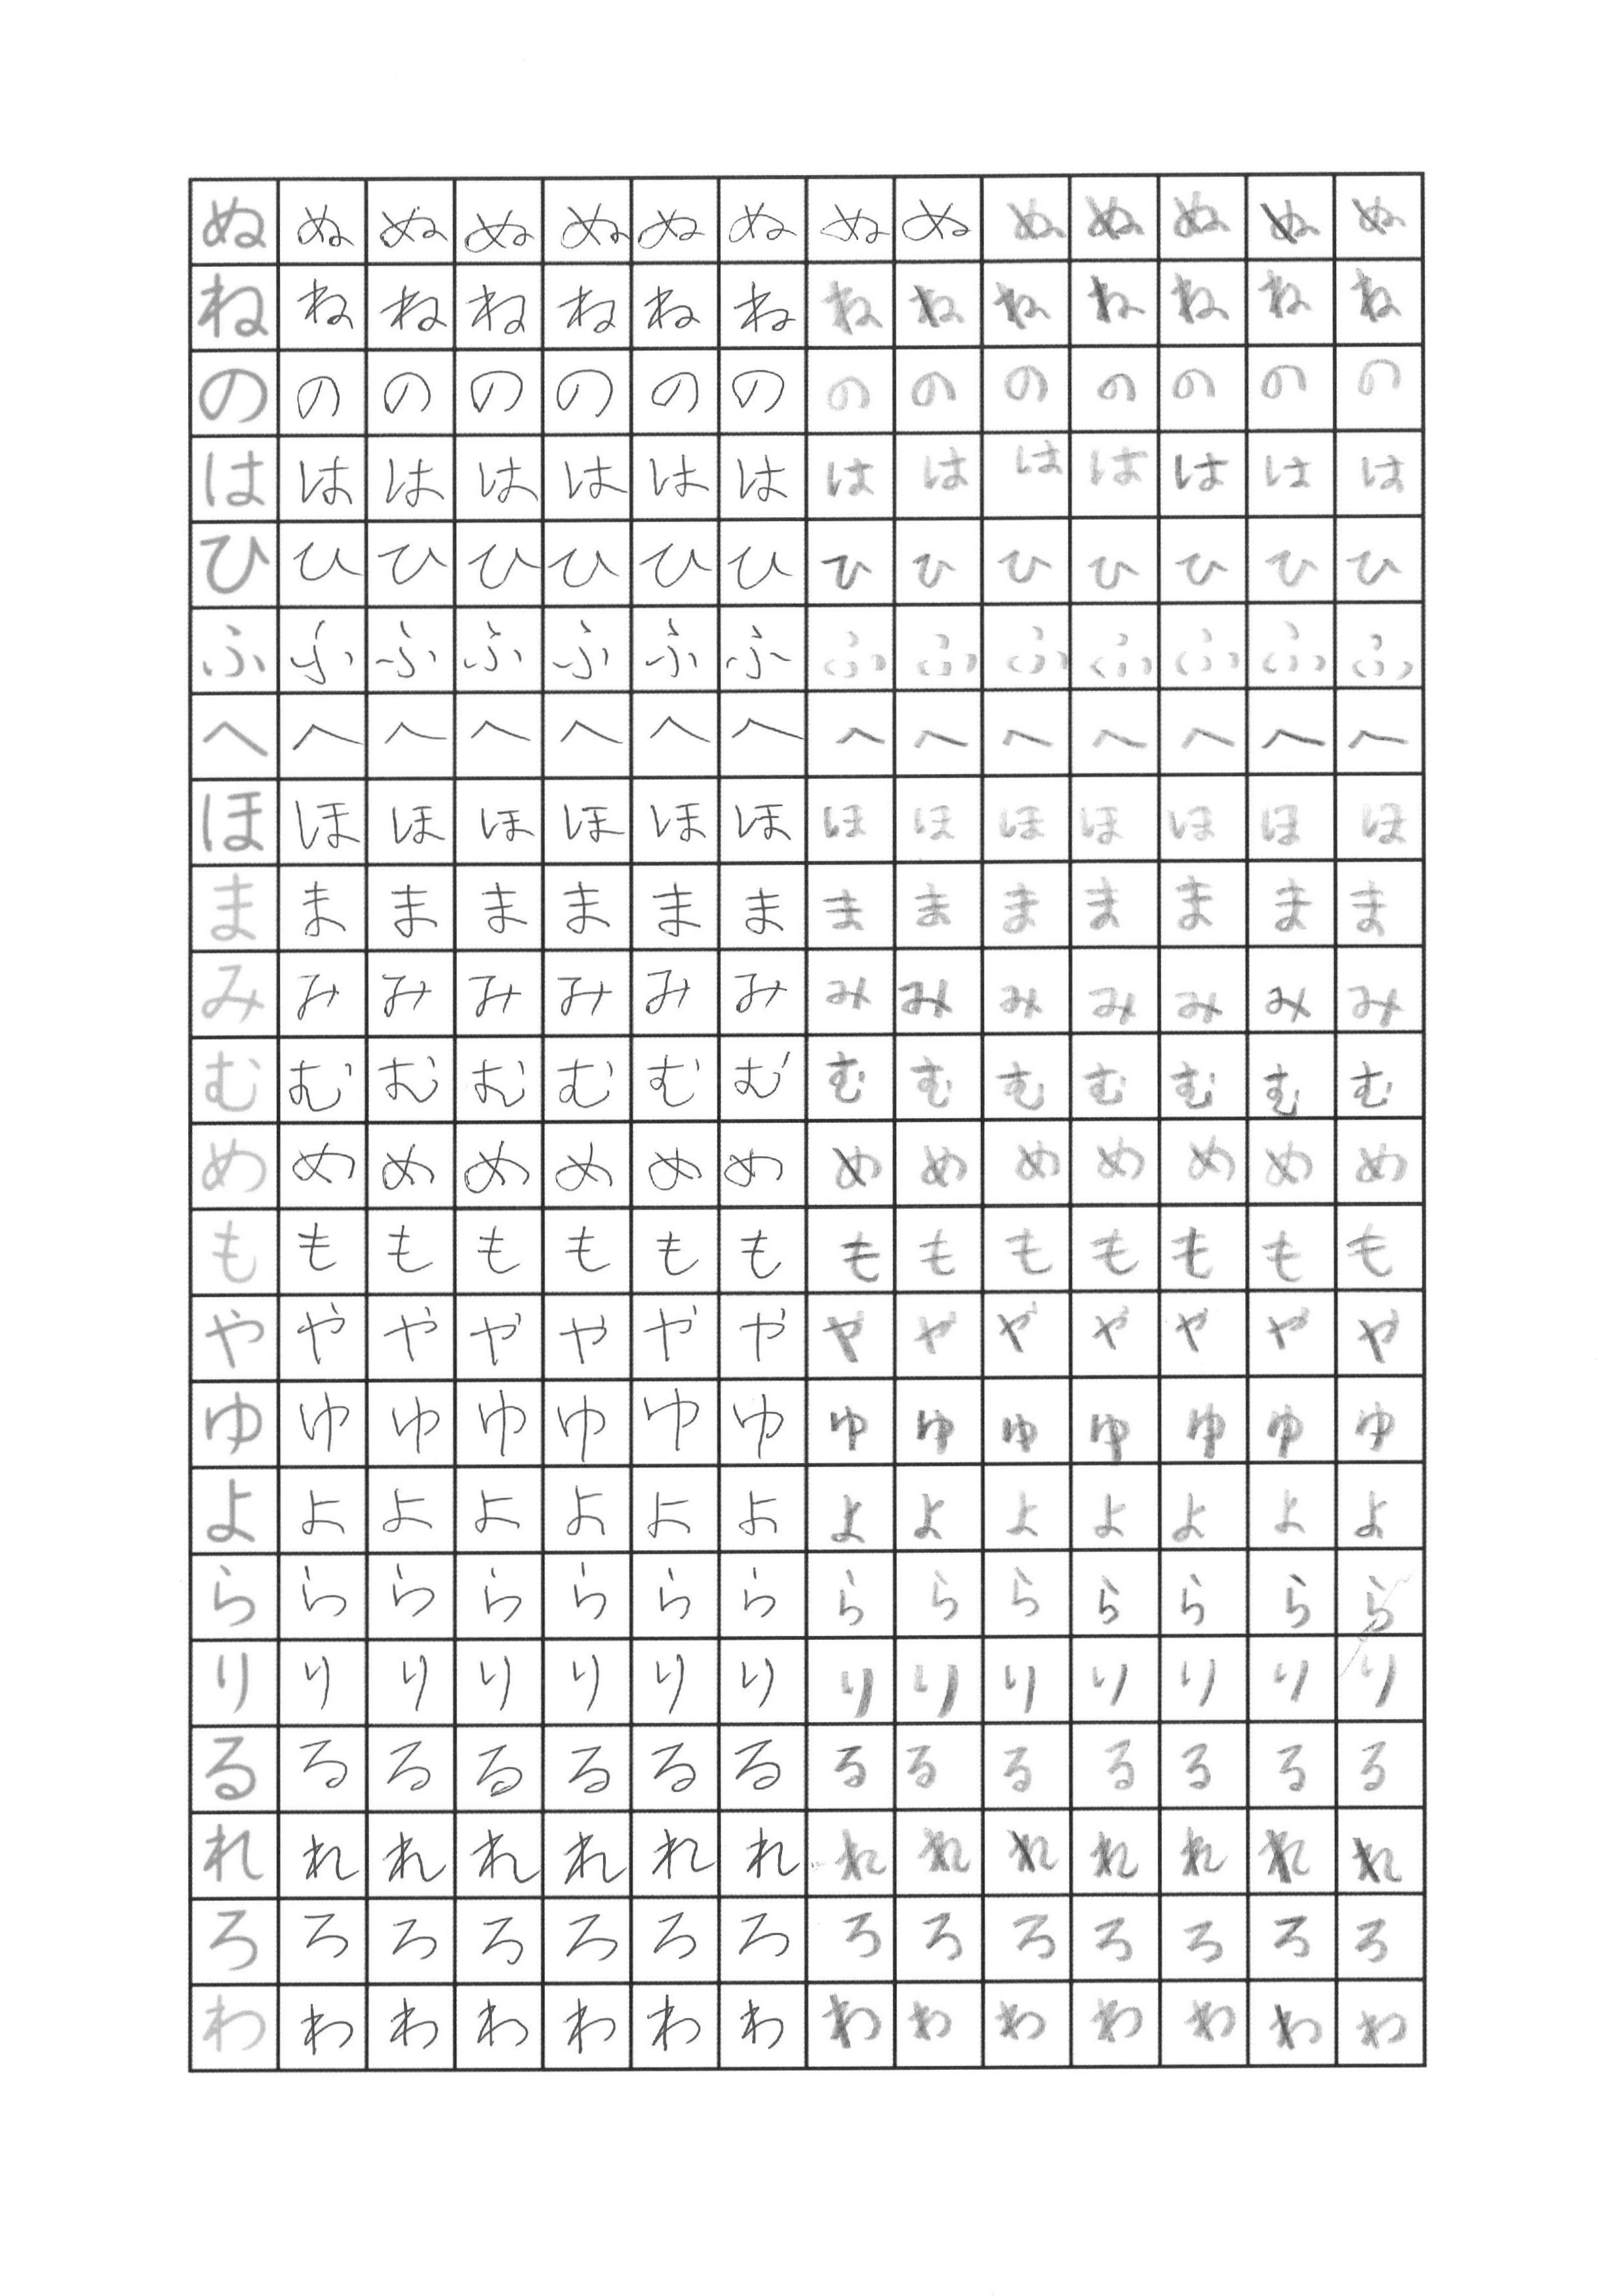 ぬぬぬぬぬぬぬぬぬぬぬぬぬぬ
ねねねねねねねねねねねねねね
のののののののののののののの
はははははははははははははは
ひひひひひひひひひひひひひひ
ふふふふふふふふふふふふふふ
へへへへへへへへへへへへへへ
ほほほほほほほほほほほほほほ
まままままままままままままま
みみみみみみみみみみみみみみ
むむむむむむむむむむむむむむ
めめめめめめめめめめめめめめ
もももももももももももももも
やややややややややややややや
ゆゆゆゆゆゆゆゆゆゆゆゆゆゆ
よよよよよよよよよよよよよよ
らららららららららららららら
りりりりりりりりりりりりりり
るるるるるるるるるるるるるる
れれれれれれれれれれれれれれ
ろろろろろろろろろろろろろろ
わわわわわわわわわわわわわわ